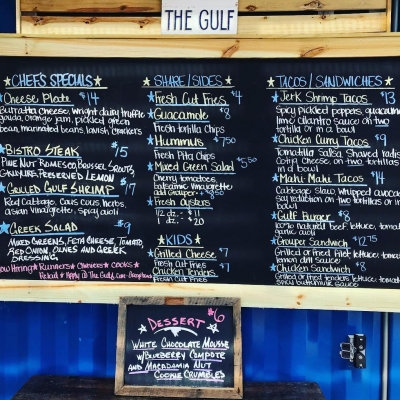 THE GULF
CHEFS SPECIALS
Cheese Plate $14
Burratta Cheese, Wright dairy truffle
gouda, orange jam, pickled green
bean, marinated beans, lavish crackers
BISTRO STEAK $15
PINE NUT ROMESCO, BRUSSEL SPROUTS,
GRUYURE, PRESERVED LEMON
GRILLED GULF SHRIMP $17
Red Cabbage, Cous cous, herbs,
asian vinaigrette, spicy aioli
GREEK SALAD $9
MIXED GREENS, FETA CHEESE, TOMATO,
RED ONION, OLIVES AND GREEK
DRESSING
Now Hiring Runners Cashiers COOKS
SHARE/SIDES
Fresh Cut Fries $4
Guacamole $8
Fresh tortilla Chips
Hummus $7.50
Fresh Pita Chips
Mixed Green Salad $5.50
Cherry tomatoes,
balsamic vinaigrette
add grouper +
Fresh Oysters
1/2 dz - $11
1 dz. - $20
KIDS
Grilled Cheese $7
Fresh Cut Fries
Chicken Tenders $7
Fresh Cut Fries
TACOS/SANDWICHES
Jerk Shrimp Tacos $13
Spicy pickled peppers, guacamole
lime cilantro sauce on two
tortilla or in a bowl
Chicken Curry Tacos $9
Tomatillo Salsa, Shaved radish
Cotija Cheese, on two tortillas
in a bowl
Mahi Mahi Tacos $14
Cabbage Slaw Whipped avocado
soy reduction on two tortillas or
in a bowl
Gulf Burger $8
100% natural beef, lettuce, tomato
garlic aioli
Grouper Sandwich $12.75
Grilled or Fried filet lettuce tomato
lemon dill sauce
Chicken Sandwich $8
Grilled or fried tenders lettuce tomato
spicy buttermilk sauce
DESSERT $6
WHITE CHOCOLATE MOUSSE
W/BLUEBERRY COMPOTE
AND MACADAMIA NUT
COOKIE CRUMBLES